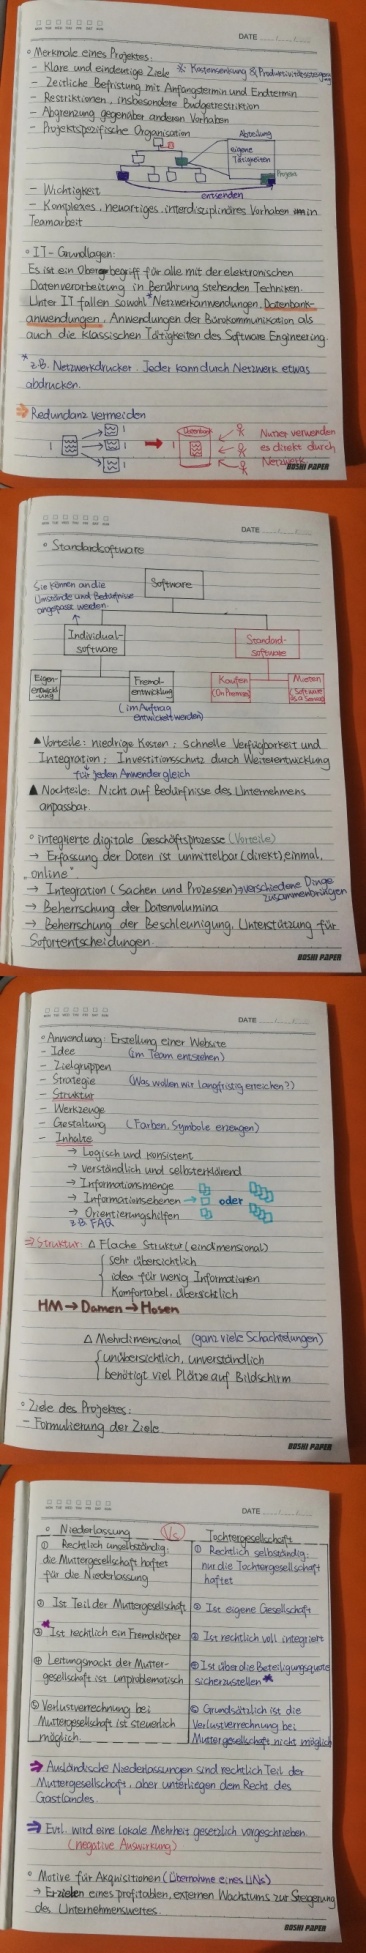 DATE
° Merkmale eines Projektes:
- Klare und eindeutige Ziele
- Zeitliche Befristung mit Anfangstermin und Endtermin
- Restriktionen, insbesondere Budgetrestriktion
- Abgrenzung gegenüber anderen Vorhaben
- Projektspezifische Organisation
Abteilung
eigene
Tätigkeiten
Projekt
entsenden
- Wichtigkeit
- Komplexes, neuartiges, interdisziplinäres Vorhaben in
Teamarbeit
° IT-Grundlagen:
Es ist ein Oberbegriff für alle mit der elektronischen
Datenverarbeitung in Berührung stehenden Techniken.
Unter IT fallen sowohl *Netzwerkanwendungen, Datenbank-
anwendungen, Anwendungen der Bürokommunikation als
auch die klassischen Tätigkeiten des Software Engineering.
* z.B. Netzwerkdrucker. Jeder kann durch Netzwerk etwas
abdrucken.
⇒ Redundanz vermeiden
Nutzer verwenden
es direkt durch
Netzwerk
BOSHI PAPER
DATE
° Standardsoftware
Software
Sie können an die
Umstände und Bedürfnisse
angepasst werden.
Individual-
software
Standard-
software
Eigen-
entwickl
-ung
Fremd-
entwicklung
(im Auftrag
entwickelt werden)
Kaufen
(On Premises)
Mieten
(Software
as a Service)
▲ Vorteile: niedrige Kosten; schnelle Verfügbarkeit und
Integration; Investitionsschutz durch Weiterentwicklung
für jeden Anwender gleich
▲ Nachteile: Nicht auf Bedürfnisse des Unternehmens
anpassbar.
° integrierte digitale Geschäftsprozesse (Vorteile)
→ Erfassung der Daten ist unmittelbar (direkt), einmal,
„online"
→ Integration (Sachen und Prozessen) → verschiedene Dinge
zusammenbringen
→ Beherrschung der Datenvolumina
→ Beherrschung der Beschleunigung, Unterstützung für
Sofortentscheidungen.
BOSHI PAPER
DATE
° Anwendung: Erstellung einer Website
- Idee (im Team entstehen)
- Zielgruppen
- Strategie (Was wollen wir langfristig erreichen?)
- Struktur
- Werkzeuge
- Gestaltung (Farben, Symbole erzeugen)
- Inhalte
→ Logisch und konsistent
→ verständlich und selbsterklärend
→ Informationsmenge
→ Informationsebenen → oder
→ Orientierungshilfen
z.B. FAQ
⇒ Struktur: △ Flache Struktur (eindimensional)
sehr übersichtlich
idea für wenig Informationen
Komfortabel, übersichtlich
HM → Damen → Hosen
△ Mehrdimensional (ganz viele Schachtelungen)
unübersichtlich, unverständlich
benötigt viel Plätze auf Bildschirm
° Ziele des Projektes:
- Formulierung der Ziele
BOSHI PAPER
DATE
° Niederlassung Vs Tochtergesellschaft
① Rechtlich unselbständig:
die Muttergesellschaft haftet
für die Niederlassung
① Rechtlich selbständig:
nur die Tochtergesellschaft
haftet
② Ist Teil der Muttergesellschaft
② Ist eigene Gesellschaft
③ Ist rechtlich ein Fremdkörper
③ Ist rechtlich voll integriert
④ Leitungsmacht der Mutter-
gesellschaft ist unproblematisch
④ Ist über die Beteiligungsquote
sicherzustellen *
⑤ Verlustverrechnung bei
Muttergesellschaft ist steuerlich
möglich.
⑤ Grundsätzlich ist die
Verlustverrechnung bei
Muttergesellschaft nicht möglich
⇒ Ausländische Niederlassungen sind rechtlich Teil der
Muttergesellschaft, aber unterliegen dem Recht des
Gastlandes.
⇒ Evtl. wird eine lokale Mehrheit gesetzlich vorgeschrieben
(negative Auswirkung)
° Motive für Akquisitionen (Übernahme eines UNs)
→ Erzielen eines profitablen, externen Wachstums zur Steigerung
des Unternehmenswertes.
BOSHI PAPER